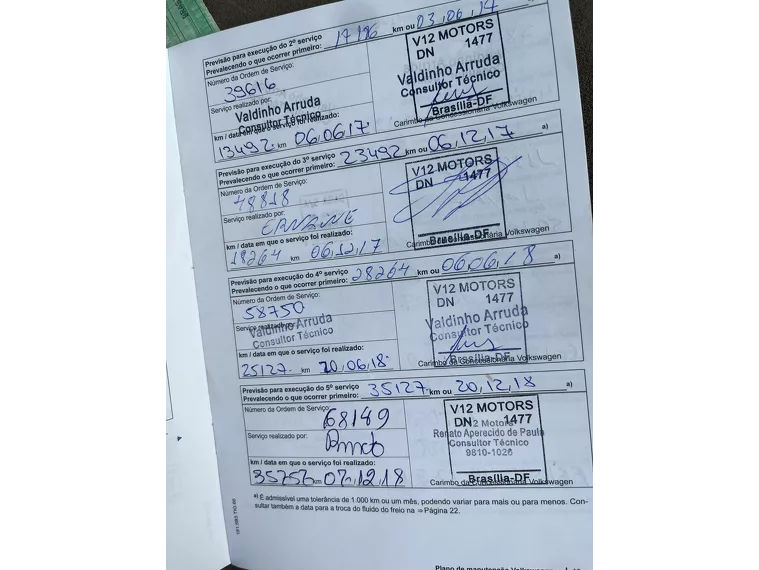 Previsão para execução do 2º serviço
Prevalecendo o que ocorrer primeiro: km ou 03,06,17
Número da Ordem de Serviço:
39616
V12 MOTORS
DN 1477
Valdinho Arruda
Consultor Técnico
Brasília-DF
Carimbo da Concessionária Volkswagen
Serviço realizado por:
Valdinho Arruda
Consultor Técnico
km / data em que o serviço foi realizado:
13492. km 06.06.17.
Previsão para execução do 3º serviço
Prevalecendo o que ocorrer primeiro: 23492 km ou 06,12,17 a)
Número da Ordem de Serviço:
48818
V12 MOTORS
DN 1477
Brasília-DF
Carimbo da Concessionária Volkswagen
Serviço realizado por:
km / data em que o serviço foi realizado:
18264 km 06,12,17
Previsão para execução do 4º serviço
Prevalecendo o que ocorrer primeiro: 28264 km ou 06,06,18 a)
Número da Ordem de Serviço:
58750
V12 MOTORS
DN 1477
Valdinho Arruda
Consultor Técnico
Brasília-DF
Carimbo da Concessionária Volkswagen
Serviço realizado por:
Valdinho Arruda
Consultor Técnico
km / data em que o serviço foi realizado:
25127. km 20.06.18.
Previsão para execução do 5º serviço
Prevalecendo o que ocorrer primeiro: 35127. km ou 20,12,18 a)
Número da Ordem de Serviço:
68149
V12 MOTORS
DN 1477
Renato Aparecido de Paula
Consultor Técnico
Brasília-DF
Carimbo da Concessionária Volkswagen
Serviço realizado por:
km / data em que o serviço foi realizado:
km 07.12.18
a) É admissível uma tolerância de 1.000 km ou um mês, podendo variar para mais ou para menos. Con-
sultar também a data para a troca do fluido do freio na ⇒ Página 22.
Plano de manutenção Volkswagen